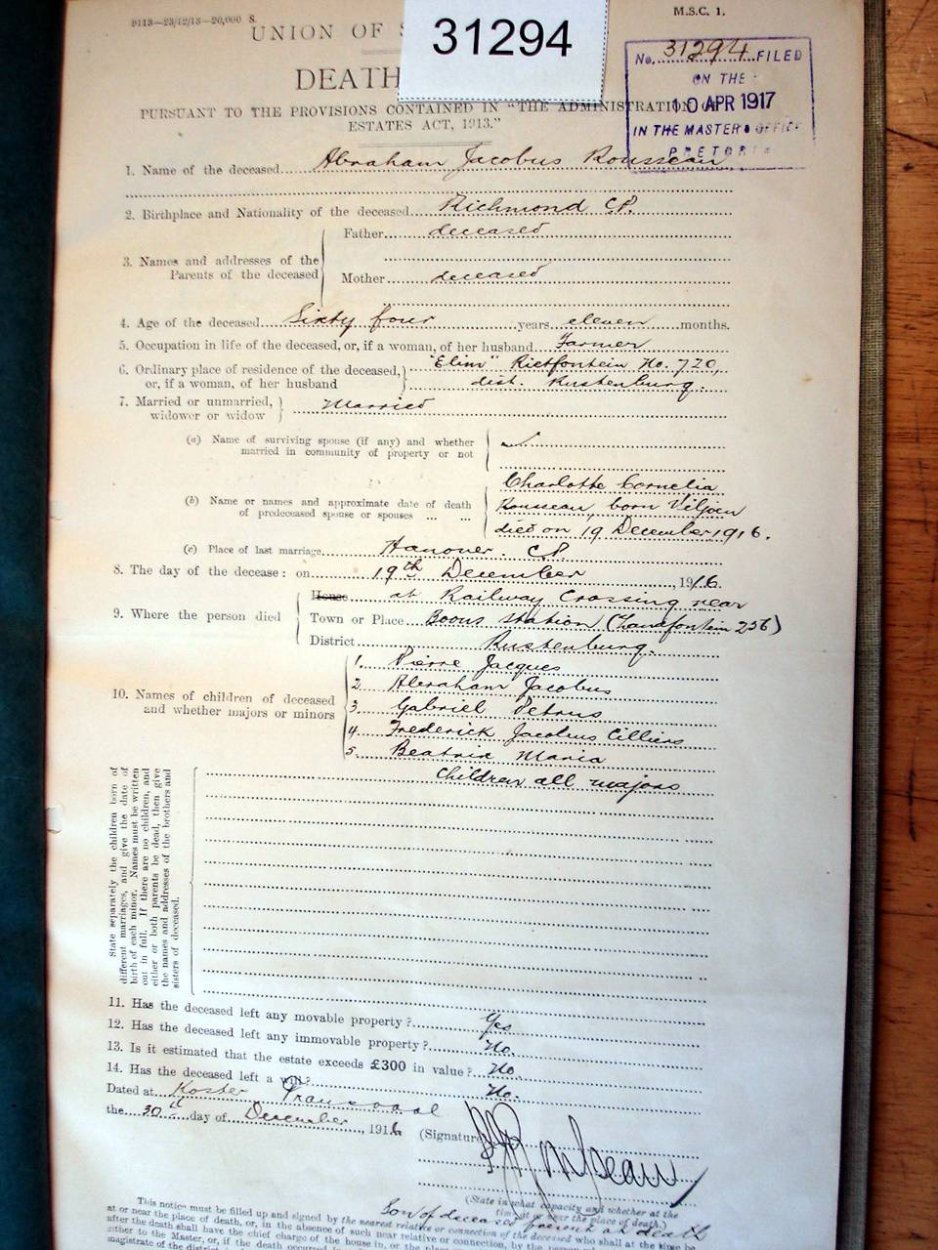 9113—23/12/13—20,000 S.
M.S.C. 1.
UNION OF S
31294
No. 31294 FILED
ON THE
10 APR 1917
IN THE MASTER'S OFFICE
PRETORIA
DEATH
PURSUANT TO THE PROVISIONS CONTAINED IN "THE ADMINISTRATION OF
ESTATES ACT, 1913."
1. Name of the deceased Abraham Jacobus Rousseau
2. Birthplace and Nationality of the deceased Richmond C.P.
3. Names and addresses of the Parents of the deceased
Father deceased
Mother deceased
4. Age of the deceased Sixty four years eleven months.
5. Occupation in life of the deceased, or, if a woman, of her husband Farmer
6. Ordinary place of residence of the deceased, or, if a woman, of her husband
"Elim" Rietfontein No. 720,
dist. Rustenburg.
7. Married or unmarried, widower or widow Married
(a) Name of surviving spouse (if any) and whether
married in community of property or not
(b) Name or names and approximate date of death
of predeceased spouse or spouses
Charlotte Cornelia
Rousseau, born Viljoen
died on 19 December 1916.
(c) Place of last marriage Hanover. C.P.
8. The day of the decease: on 19th December, 1916.
9. Where the person died
House at Railway Crossing near
Town or Place Boons Station (Zandfontein 256)
District Rustenburg.
10. Names of children of deceased
and whether majors or minors
1. Pierre Jacques
2. Abraham Jacobus
3 Gabriel Petrus
4 Frederick Jacobus Cilliers
5. Beatrix Maria
Children all majors
State separately the children born of
different marriages, and give the date of
birth of each minor. Names must be written
out in full. If there are no children, and
either or both parents be dead, then give
the names and addresses of the brothers and
sisters of deceased.
11. Has the deceased left any movable property? Yes
12. Has the deceased left any immovable property? No.
13. Is it estimated that the estate exceeds £300 in value? No.
14. Has the deceased left a will? No.
Dated at Koster Transvaal
the 30th day of December, 1916
(Signature) Rousseau
(State in what capacity and whether at the
time at or near the place of death.)
Son of deceased present at death
This notice must be filled up and signed by the nearest relative or connection of the deceased who shall at the time be
at or near the place of death, or, in the absence of such near relative or connection, by the person who
after the death shall have the chief charge of the house in, or the place
either to the Master, or, if the death occurred
magistrate of the district